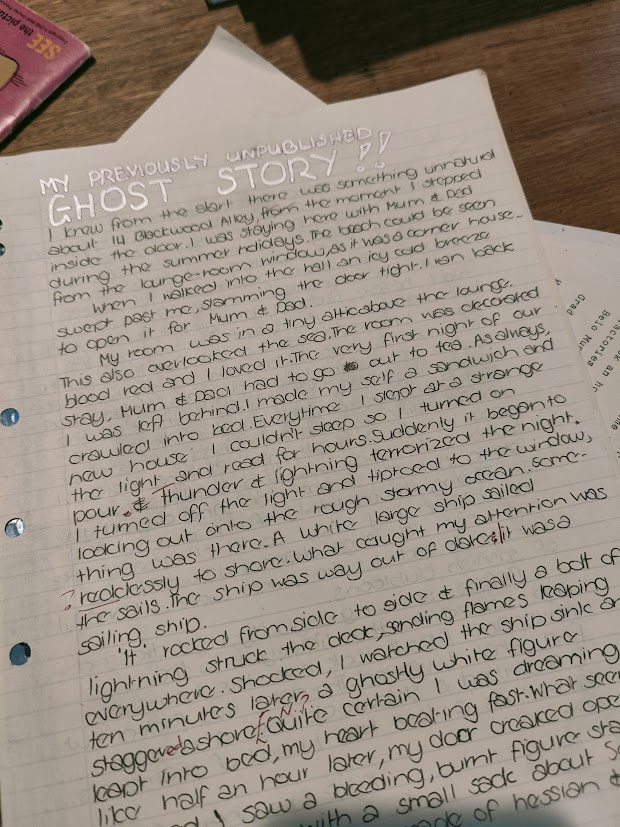 SEE
the pictu
MY PREVIOUSLY UNPUBLISHED
GHOST STORY!!
I knew from the start there was something unnatural
about 14 Blackwood Alley, from the moment I stepped
inside the door. I was staying here with Mum & Dad
during the summer holidays. The beach could be seen
from the lounge-room window, as it was a corner house.
When I walked into the hall an icy cold breeze
swept past me, slamming the door tight. I ran back
to open it for Mum & Dad.
My room was in a tiny attic above the lounge.
This also overlooked the sea. The room was decorated
blood red and I loved it. The very first night of our
stay, Mum & Dad had to go out to tea. As always,
I was left behind. I made my self a sandwich and
crawled into bed. Everytime I slept at a strange
new house I couldn't sleep so I turned on
the light and read for hours. Suddenly it began to
pour. & Thunder & lightning terrorized the night.
I turned off the light and tiptoed to the window,
looking out onto the rough stormy ocean. Some-
thing was there. A white large ship sailed
? recklessly to shore. What caught my attention was
the sails. The ship was way out of date: it was a
sailing ship.
'It' rocked from side to side & finally a bolt of
lightning struck the deck, sending flames leaping
everywhere. Shocked, I watched the ship sink an
ten minutes later a ghostly white figure
staggered ashore. [N.P. Quite certain I was dreaming
leapt into bed, my heart beating fast. What seem
like half an hour later, my door creaked ope
I saw a bleeding, burnt figure sta
with a small sack about
made of hessian &
Grad
Be to Mu
actories
ok an h